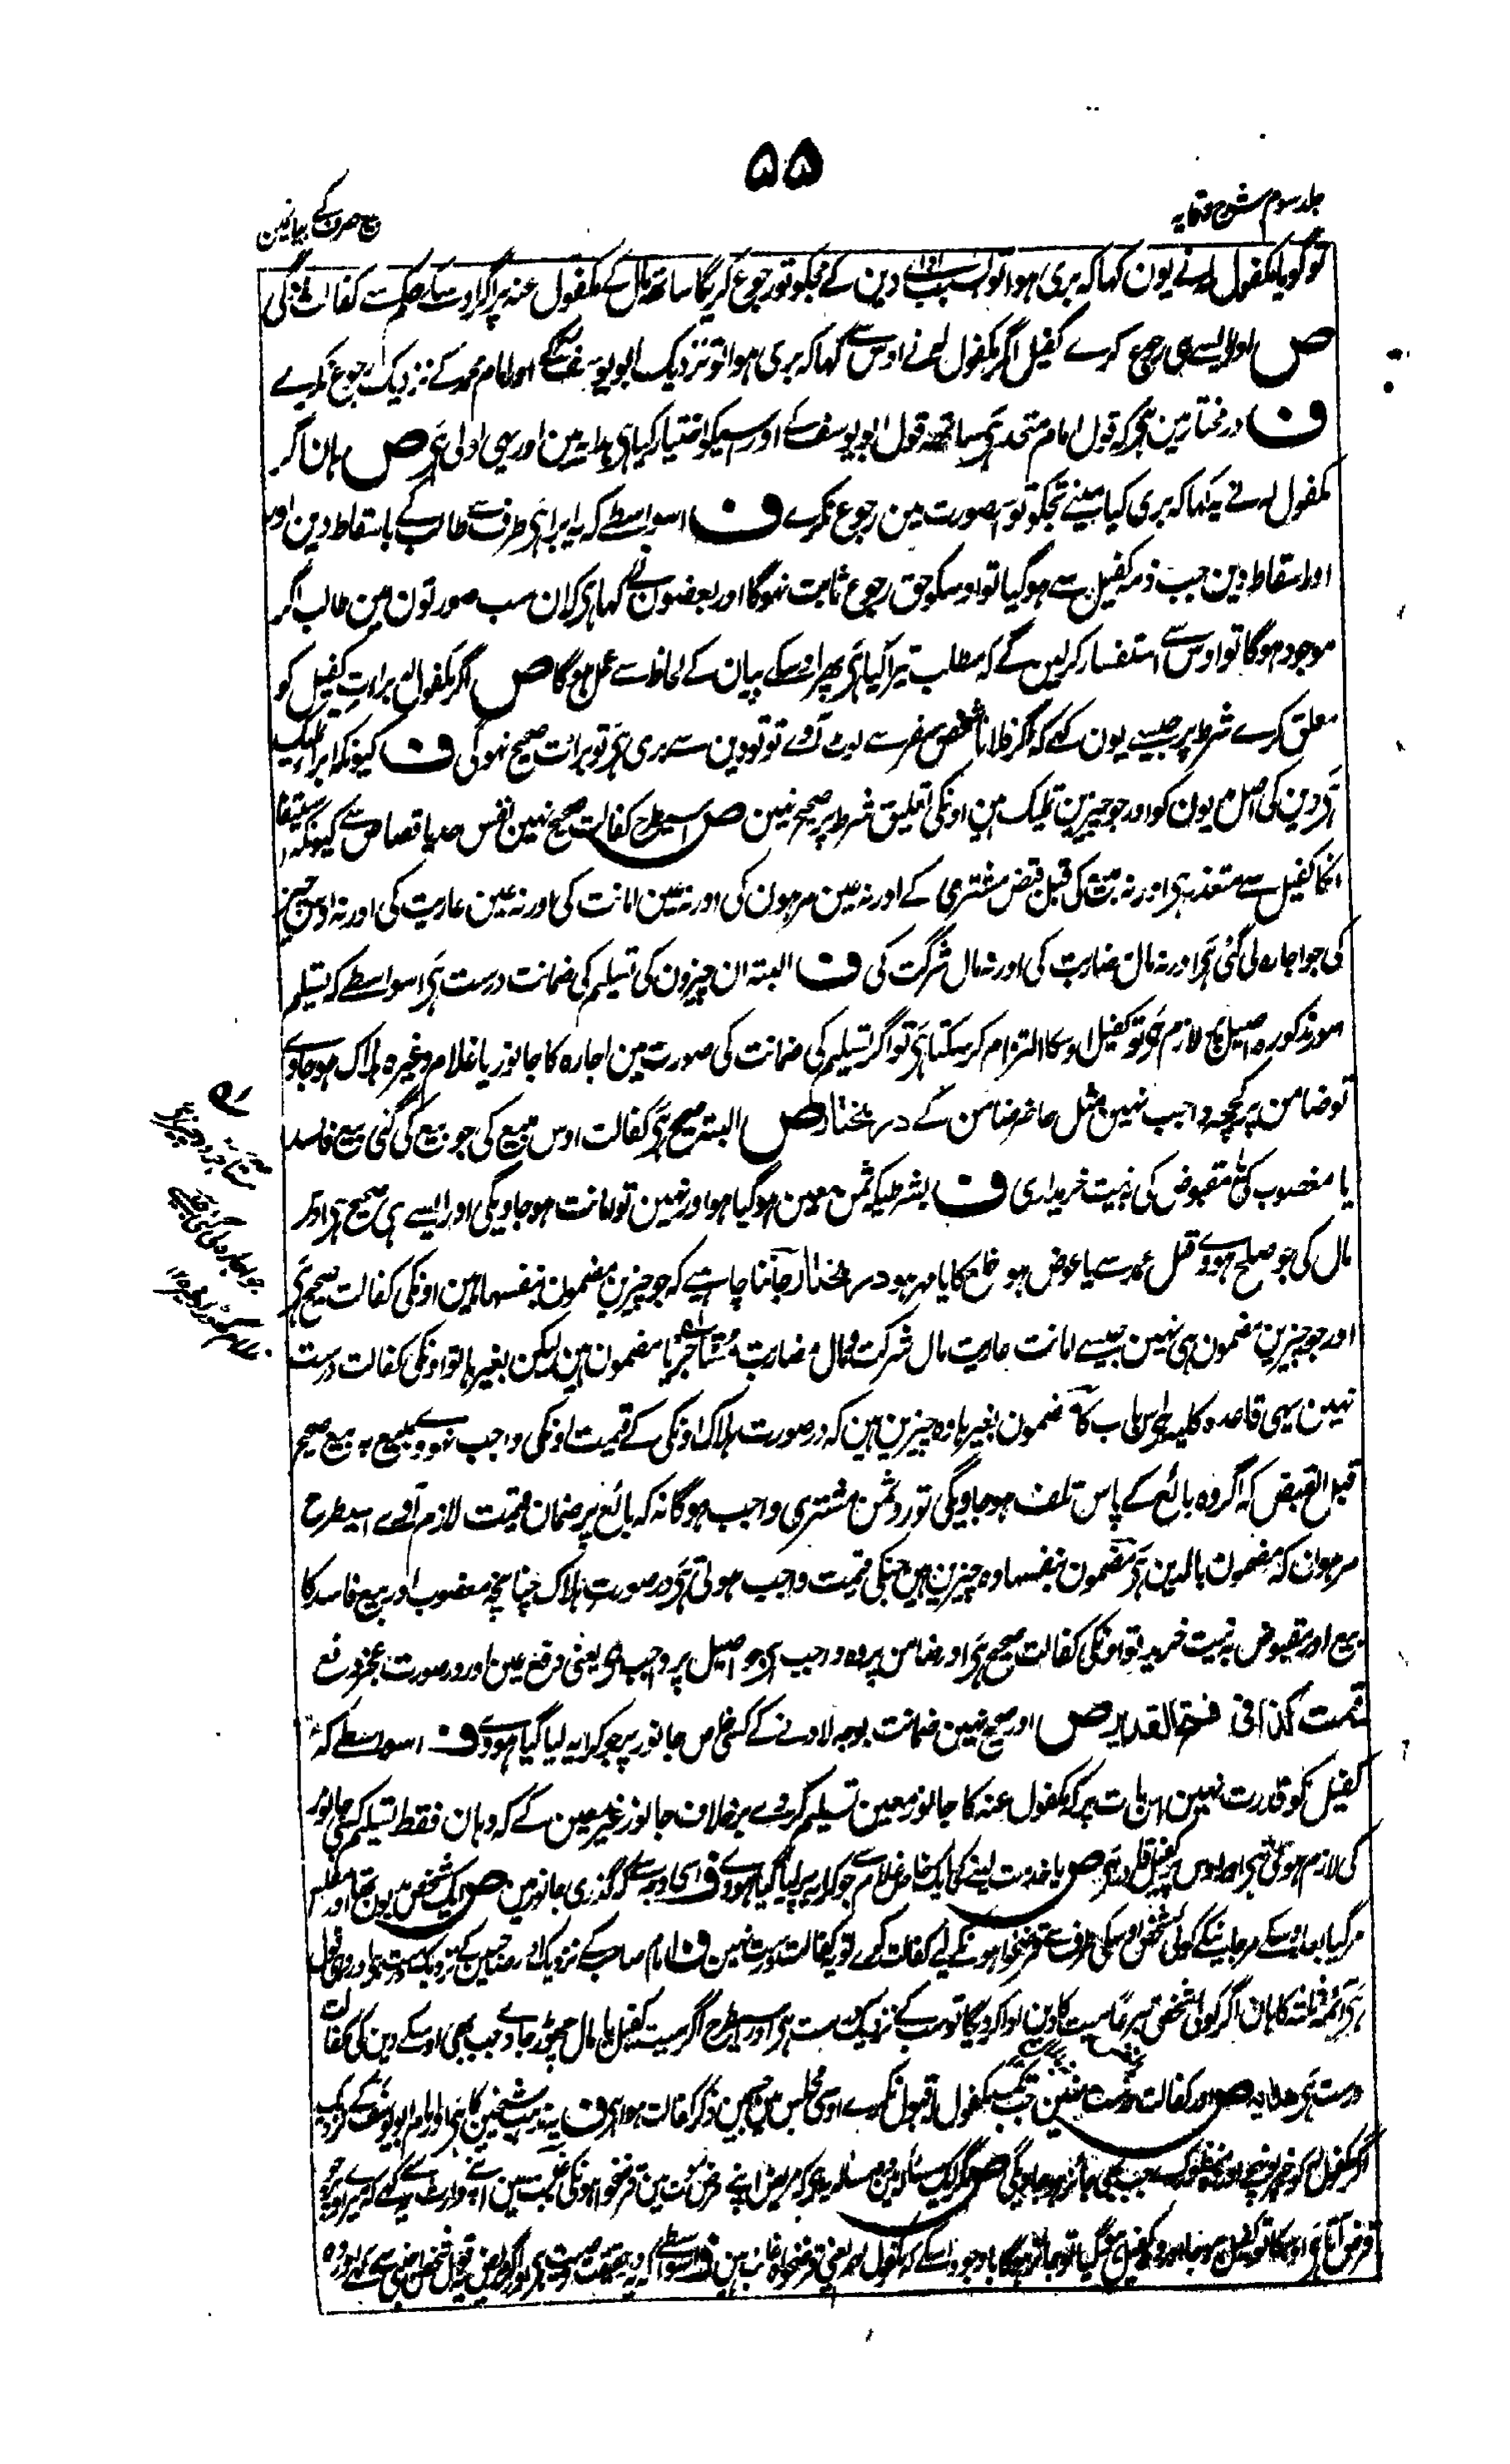 ۵۵
جلد سوم شرح وقایہ
بیع صرف کے بیانمین
تو گویا مکفول لہ نے یون کہا کہ بری ہوا تو بسبب ادا دین کے مجکو تو رجوع کریگا ساتھ مال کے مکفول عنہ پر اگر اوسکے حکم سے کفالت کی
ص اور ایسے ہی رجوع کرے کفیل اگر مکفول لہ نے اوس سے کہا کہ بری ہوا تو نزدیک ابو یوسف کے اور امام محمد کے نزدیک رجوع نکرے
ف در مختار مین ہی کہ قول امام متحد ہی ساتھ قول ابو یوسف کے اور اسیکو اختیار کیا ہی ہدایہ مین اور یہی اولی ہی ص ہان اگر
مکفول لہ نے یہ کہا کہ بری کیا مینے تجکو تو اسصورت مین رجوع نکرے ف اسواسطے کہ یہ ابرا ہی طرف سے طالب کے باسقاط دین اور
اور اسقاط دین جب ذمہ کفیل سے ہو گیا تو اوسکو حق رجوع ثابت نہوگا اور بعضون نے کہا ہی کہ ان سب صورتون مین طالب اگر
موجود ہوگا تو اوس سے استفسار کر لین گے کہ مطلب تیرا کیا ہی پھر اوسکے بیان کے لحاظ سے عمل ہوگا ص اگر مکفول لہ برات کفیل کو
معلق کرے شرط پر جیسے یون کہے کہ اگر فلانا شخص سفر سے لوٹ آوے تو تو دین سے بری ہی تو برات صحیح نہوگی ف کیونکہ ابرا تملیک
ہی دین کی اصل مدیون کو اور جو چیزین تملیک ہین اونکی تعلیق شرط پر صحیح نہین ص اسیطرح کفالت صحیح نہین نفس حد یا قصاص سے کیونکہ استیفا
انکا کفیل سے متعذر ہی اور نہ مبیع کی قبل قبض مشتری کے اور نہ عین مرہون کی اور نہ عین امانت کی اور نہ عین عاریت کی اور نہ اوس چیز
کی جو اجارہ لی گئی ہی اور نہ مال مضاربت کی اور نہ مال شرکت کی ف البتہ ان چیزون کی تسلیم کی ضمانت درست ہی اسواسطے کہ تسلیم
امور مذکورہ اصیل پر لازم ہی تو کفیل اوسکا التزام کر سکتا ہی تو اگر تسلیم کی ضمانت کی صورت مین اجارہ کا جانور یا غلام وغیرہ ہلاک ہو جاوے
تو ضامن پر کچھ واجب نہین مثل حاضر ضامن کے در مختار ص البتہ صحیح ہی کفالت اوس مبیع کی جو بیع کی گئی بیع فاسد
یا مغصوب کی یا مقبوض کی بہ نیت خریداری ف بشرطیکہ ثمن معین ہو گیا ہو اور نہین تو امانت ہو جاویگی اور ایسے ہی صحیح ہی اوس
مال کی جو صلح ہووے قتل عمد سے یا عوض ہو خلع کا یا مہر ہو در مختار جاننا چاہیے کہ جو چیزین مضمون بنفسہا ہین اونکی کفالت صحیح ہی
اور جو چیزین مضمون ہی نہین جیسے امانت عاریت مال شرکت و مال مضاربت مستاجر یا مضمون ہین لیکن بغیرہا تو اونکی کفالت درست
نہین یہی قاعدہ کلیہ ہی اس باب کا مضمون بغیرہا وہ چیزین ہین کہ در صورت ہلاک اونکی کے قیمت اونکی واجب نہووے جیسے مبیع بہ بیع صحیح
قبل القبض کہ اگر وہ بائع کے پاس تلف ہو جاویگی تو رد ثمن مشتری واجب ہوگا نہ کہ بائع پر ضمان قیمت لازم آوے اسیطرح
مرہون کہ مضمون بالدین ہی مضمون بنفسہا وہ چیزین ہین جنکی قیمت واجب ہوتی ہی در صورت ہلاک چنانچہ مغصوب اور بیع فاسد کا
مبیع اور مقبوض بہ نیت خرید تو اونکی کفالت صحیح ہی اور ضامن پر وہ واجب ہی جو اصیل پر واجب ہی یعنی دفع عین اور در صورت عجز دفع
قیمت کذا فی فتح القدیر ص اور صحیح نہین ضمانت بوجہ لادنے کے کسی خاص جانور پر جو کرایہ لیا گیا ہووے ف اسواسطے کہ
کفیل کو قدرت نہین اس بات پر کہ مکفول عنہ کا جانور معین تسلیم کر دے برخلاف جانور غیر معین کے کہ وہان فقط تسلیم کسی جانور
کی لازم ہوتی ہی اور اوس پر کفیل قادر ہی ص یا خدمت لینے کی ایک خاص غلام سے جو کرایہ پر لیا گیا ہووے ف اسی وجہ سے کہ گذری جانور مین ص ایک شخص مدیون تھا اور مفلس
مر گیا بعد اوسکے مر جانے کے کوئی شخص اوسکی طرف سے قرضخواہونکے لیے کفالت کرے تو یہ کفالت درست نہین ف امام صاحب کے نزدیک اور صاحبین کے نزدیک درست ہی اور یہی قول
ہی ائمہ ثلثہ کا ہان اگر کوئی شخص تبرعا میت کا دین ادا کر دیگا تو سب کے نزدیک درست ہی اور اسیطرح اگر میت کفیل یا مال چھوڑ جاوے جب بھی اوسکے دین کی کفالت
درست ہی ہدایہ ص اور کفالت درست نہین جب تک مکفول لہ قبول نکرے اوسی مجلس مین جسمین ذکر کفالت ہوا ہی ف یہ مذہب شیخین کا ہی اور امام ابو یوسف کے نزدیک
اگر مکفول لہ کو خبر پہنچے اور وہ منظور کرے جب بھی جائز ہو جاویگی ص مگر ایک مسئلہ مین وہ مسئلہ یہ ہی کہ مریض اپنے مرض موت مین قرضخواہونکی غیبت مین اپنے وارث سے کہے کہ میرے اوپر جو
قرض آتا ہی اوسکا تو کفیل ہو جا اور وہ کفیل ہو گیا تو جائز ہوگا باوجود اسکے کہ مکفول لہ یعنی قرضخواہ غائب ہین ف اسواسطے کہ یہ در حقیقت وصیت ہی اور اگر مریض یہ قول شخص اجنبی سے کہے اور وہ